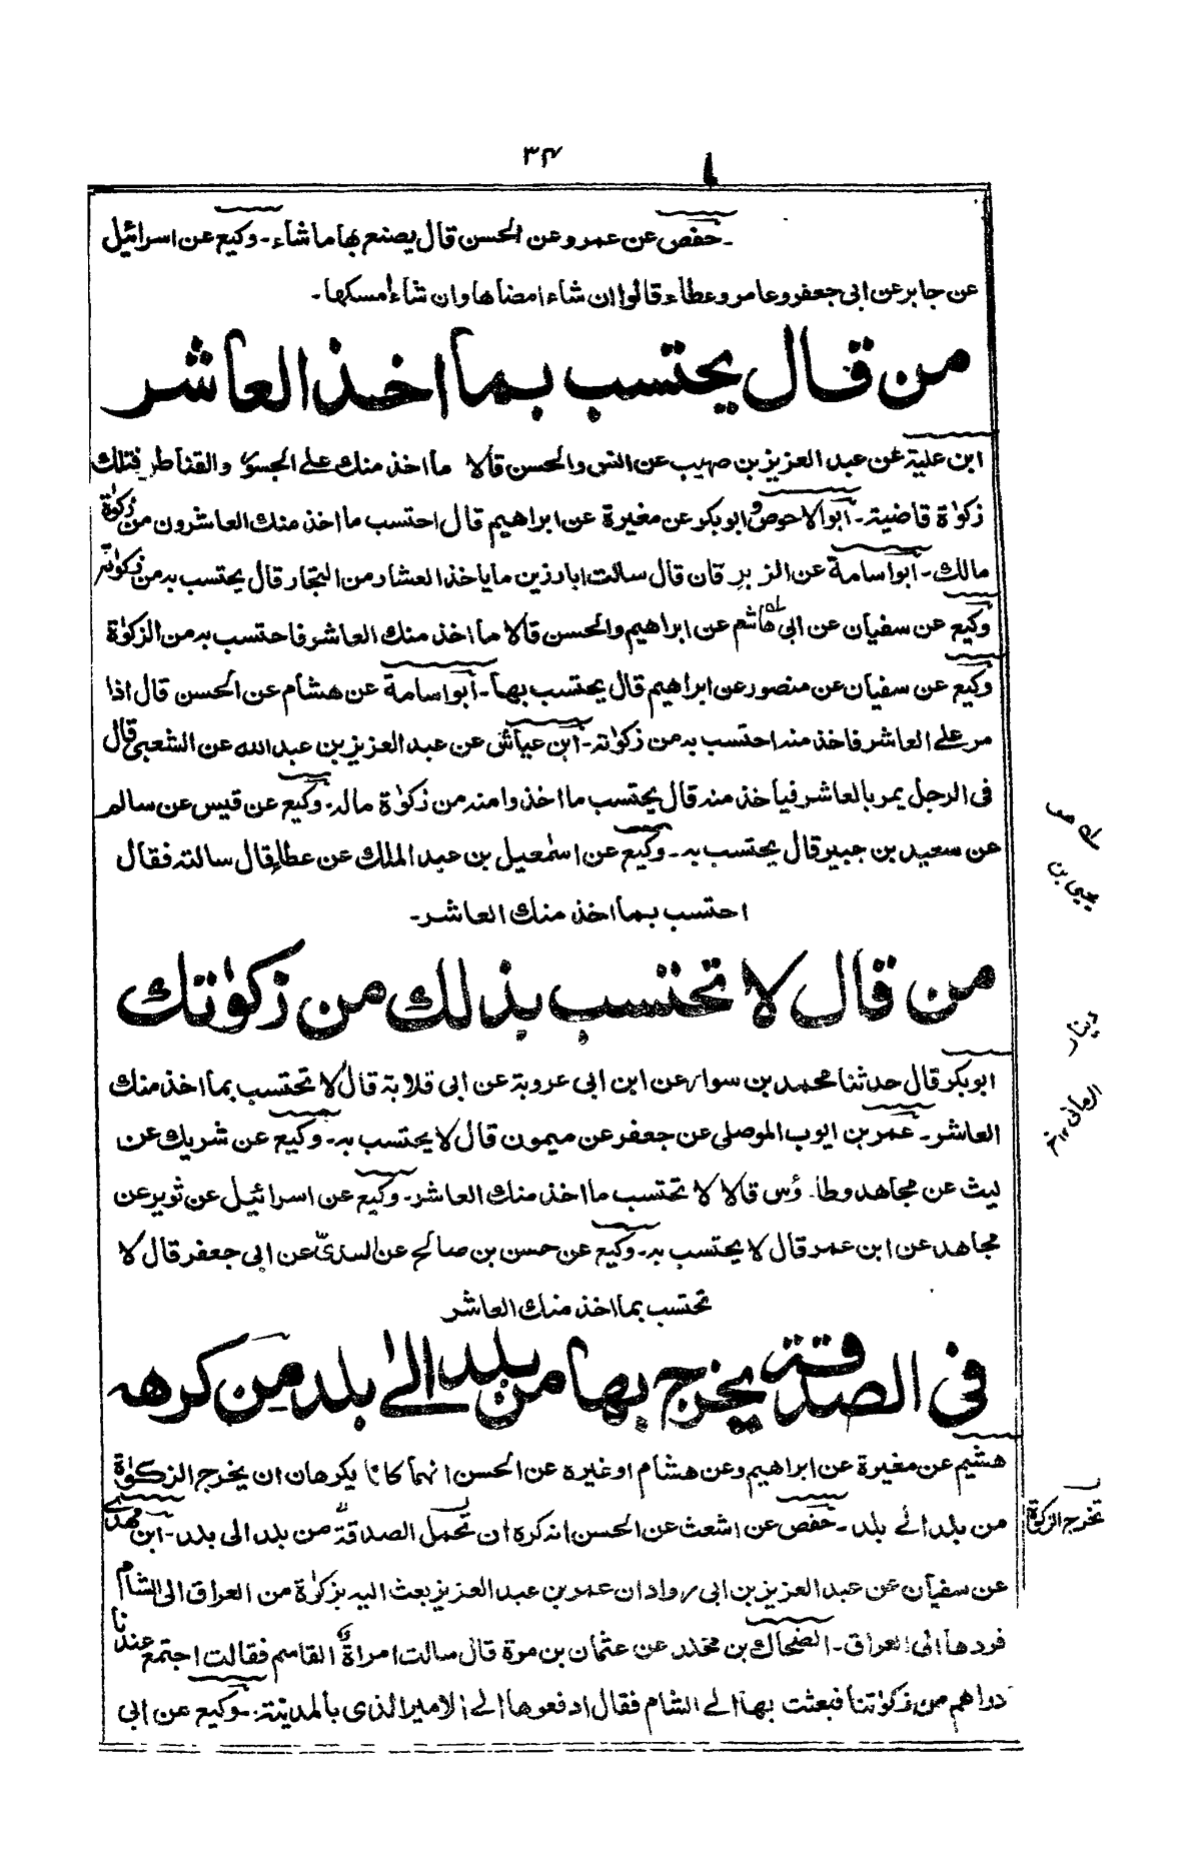 ۳۴
ـ حفص عن عمرو عن الحسن قال يصنع بها ما شاء ـ وكيع عن اسرائيل
عن جابر عن ابى جعفر وعامر وعطاء قالوا ان شاء امضاها وان شاء امسكها ـ
من قال يحتسب بما اخذ العاشر
ابن علية عن عبد العزيز بن صهيب عن انس والحسن قالا ما اخذ منك على الجسور والقناطر فتلك
زكوٰة قاضية ـ ابو الاحوص و ابو بكر عن مغيرة عن ابراهيم قال احتسب ما اخذ منك العاشرون من زكوٰة
مالك ـ ابو اسامة عن الزبرقان قال سالت ابا رزين ما ياخذ العشار من التجار قال يحتسب به من زكوٰته
وكيع عن سفيان عن ابى هاشم عن ابراهيم والحسن قالا ما اخذ منك العاشر فاحتسب به من الزكوٰة
وكيع عن سفيان عن منصور عن ابراهيم قال يحتسب بها ـ ابو اسامة عن هشام عن الحسن قال اذا
مر على العاشر فاخذ منه احتسب به من زكوٰته ـ ابن عياش عن عبد العزيز بن عبد الله عن الشعبى قال
فى الرجل يمر بالعاشر فياخذ منه قال يحتسب ما اخذوا منه من زكوٰة ماله ـ وكيع عن قيس عن سالم
عن سعيد بن جبير قال يحتسب به ـ وكيع عن اسمٰعيل بن عبد الملك عن عطاء قال سالته فقال
احتسب بما اخذ منك العاشر ـ
من قال لا تحتسب بذلك من زكوٰتك
ابو بكر قال حدثنا محمد بن سواء عن ابن ابى عروبة عن ابى قلابة قال لا تحتسب بما اخذ منك
العاشر ـ عمر بن ايوب الموصلى عن جعفر عن ميمون قال لا يحتسب به ـ وكيع عن شريك عن
ليث عن مجاهد وطاؤس قالا لا تحتسب ما اخذ منك العاشر ـ وكيع عن اسرائيل عن ثوير عن
مجاهد عن ابن عمر قال لا يحتسب به ـ وكيع عن حسن بن صالح عن السدىّ عن ابى جعفر قال لا
تحتسب بما اخذ منك العاشر
فى الصدقة يخرج بها من بلد الى بلد من كرهه
هشيم عن مغيرة عن ابراهيم وعن هشام او غيره عن الحسن انهما كانا يكرهان ان يخرج الزكوٰة
من بلد الى بلد ـ حفص عن اشعث عن الحسن انه كره ان تحمل الصدقة من بلد الى بلد ـ ابن مهدى
عن سفيان عن عبد العزيز بن ابى رواد ان عمر بن عبد العزيز بعث اليه بزكوٰة من العراق الى الشام
فردها الى العراق ـ الضحاك بن مخلد عن عثمان بن مرة قال سالت امراة القاسم فقالت اجتمع عندنا
دراهم من زكوٰتنا فبعثت بها الى الشام فقال ادفعوها الى الامير الذى بالمدينة ـ وكيع عن ابى
يحيى بن
دينار
الرمانى ۱۲
تخرج الزكوٰة